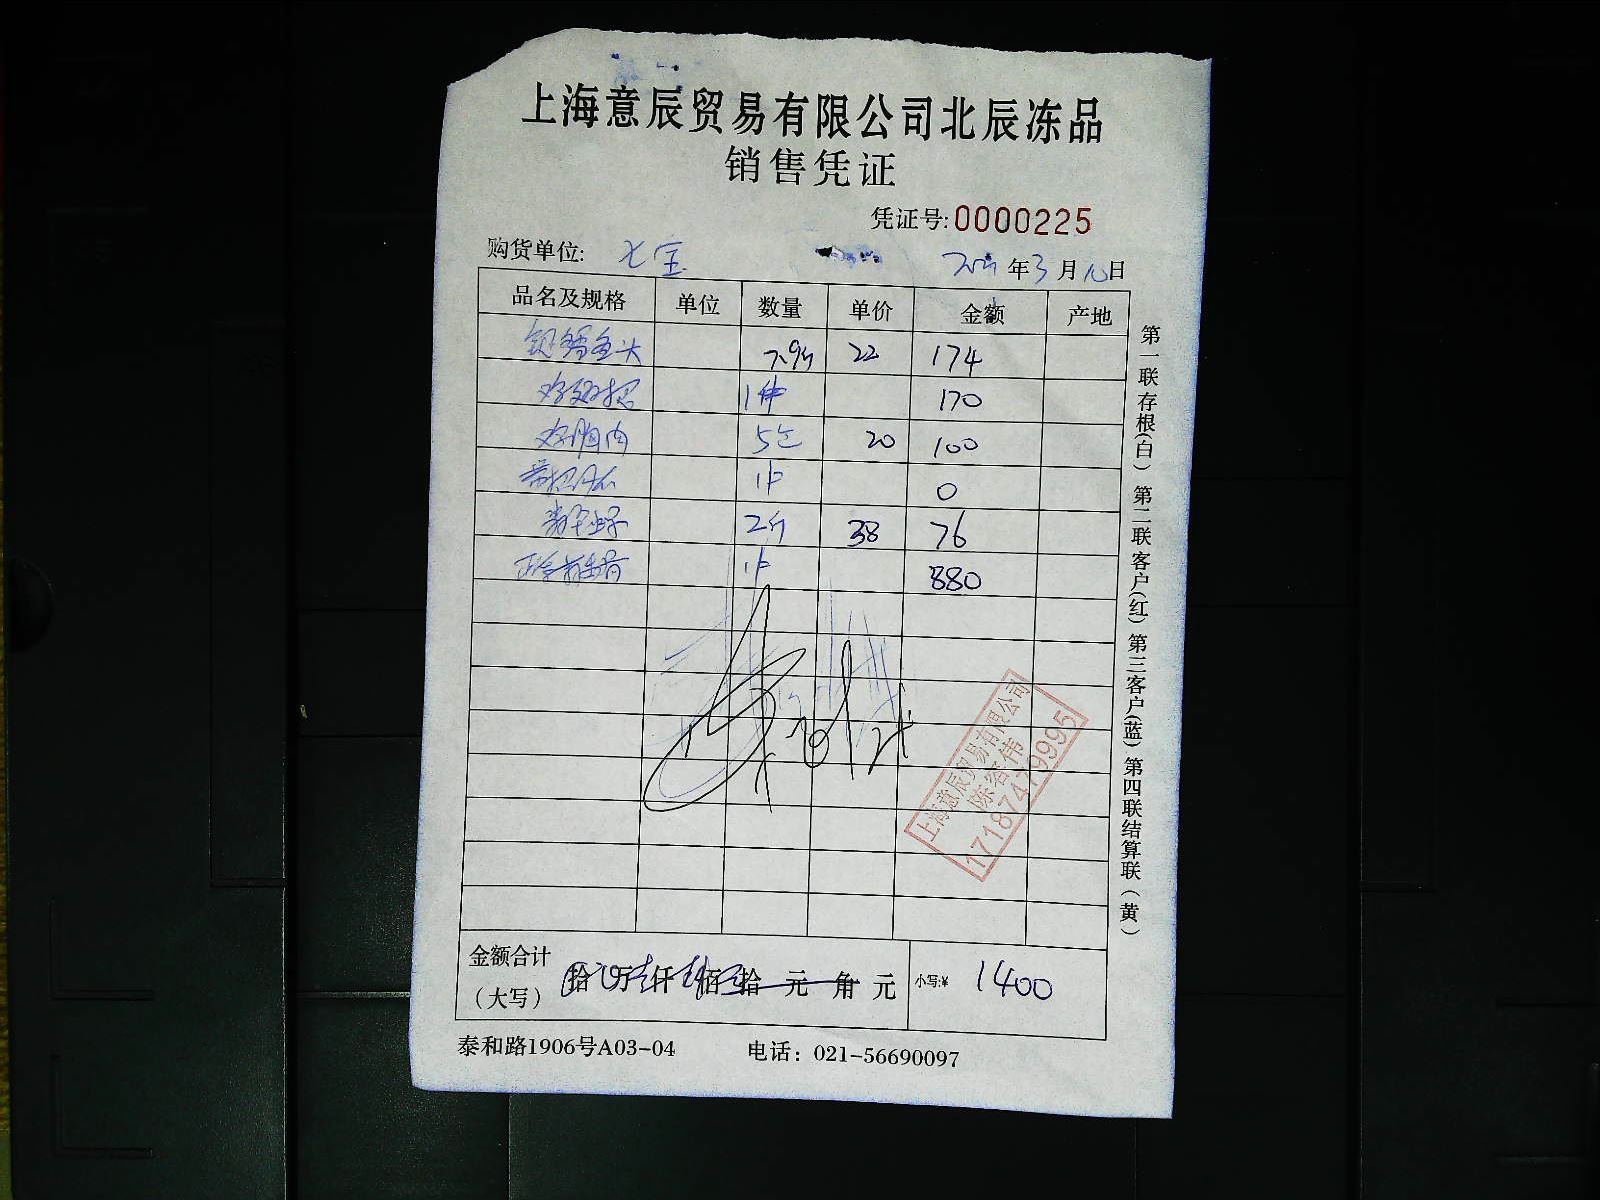 上海意辰贸易有限公司北辰冻品
销售凭证
凭证号:0000225
购货单位: 七宝
年3月10日
品名及规格 单位 数量 单价 金额 产地
银鳕鱼头 7.9斤 22 174
1件 170
胸肉 5包 20 100
1件 0
2斤 38 76
1件 880
上海意辰贸易有限公司
陈绍伟
17187479995
金额合计
(大写) 拾 万 仟 佰 拾 元 角 元 小写:¥ 1400
泰和路1906号A03-04 电话: 021-56690097
第一联存根(白) 第二联客户(红) 第三客户(蓝) 第四联结算联(黄)